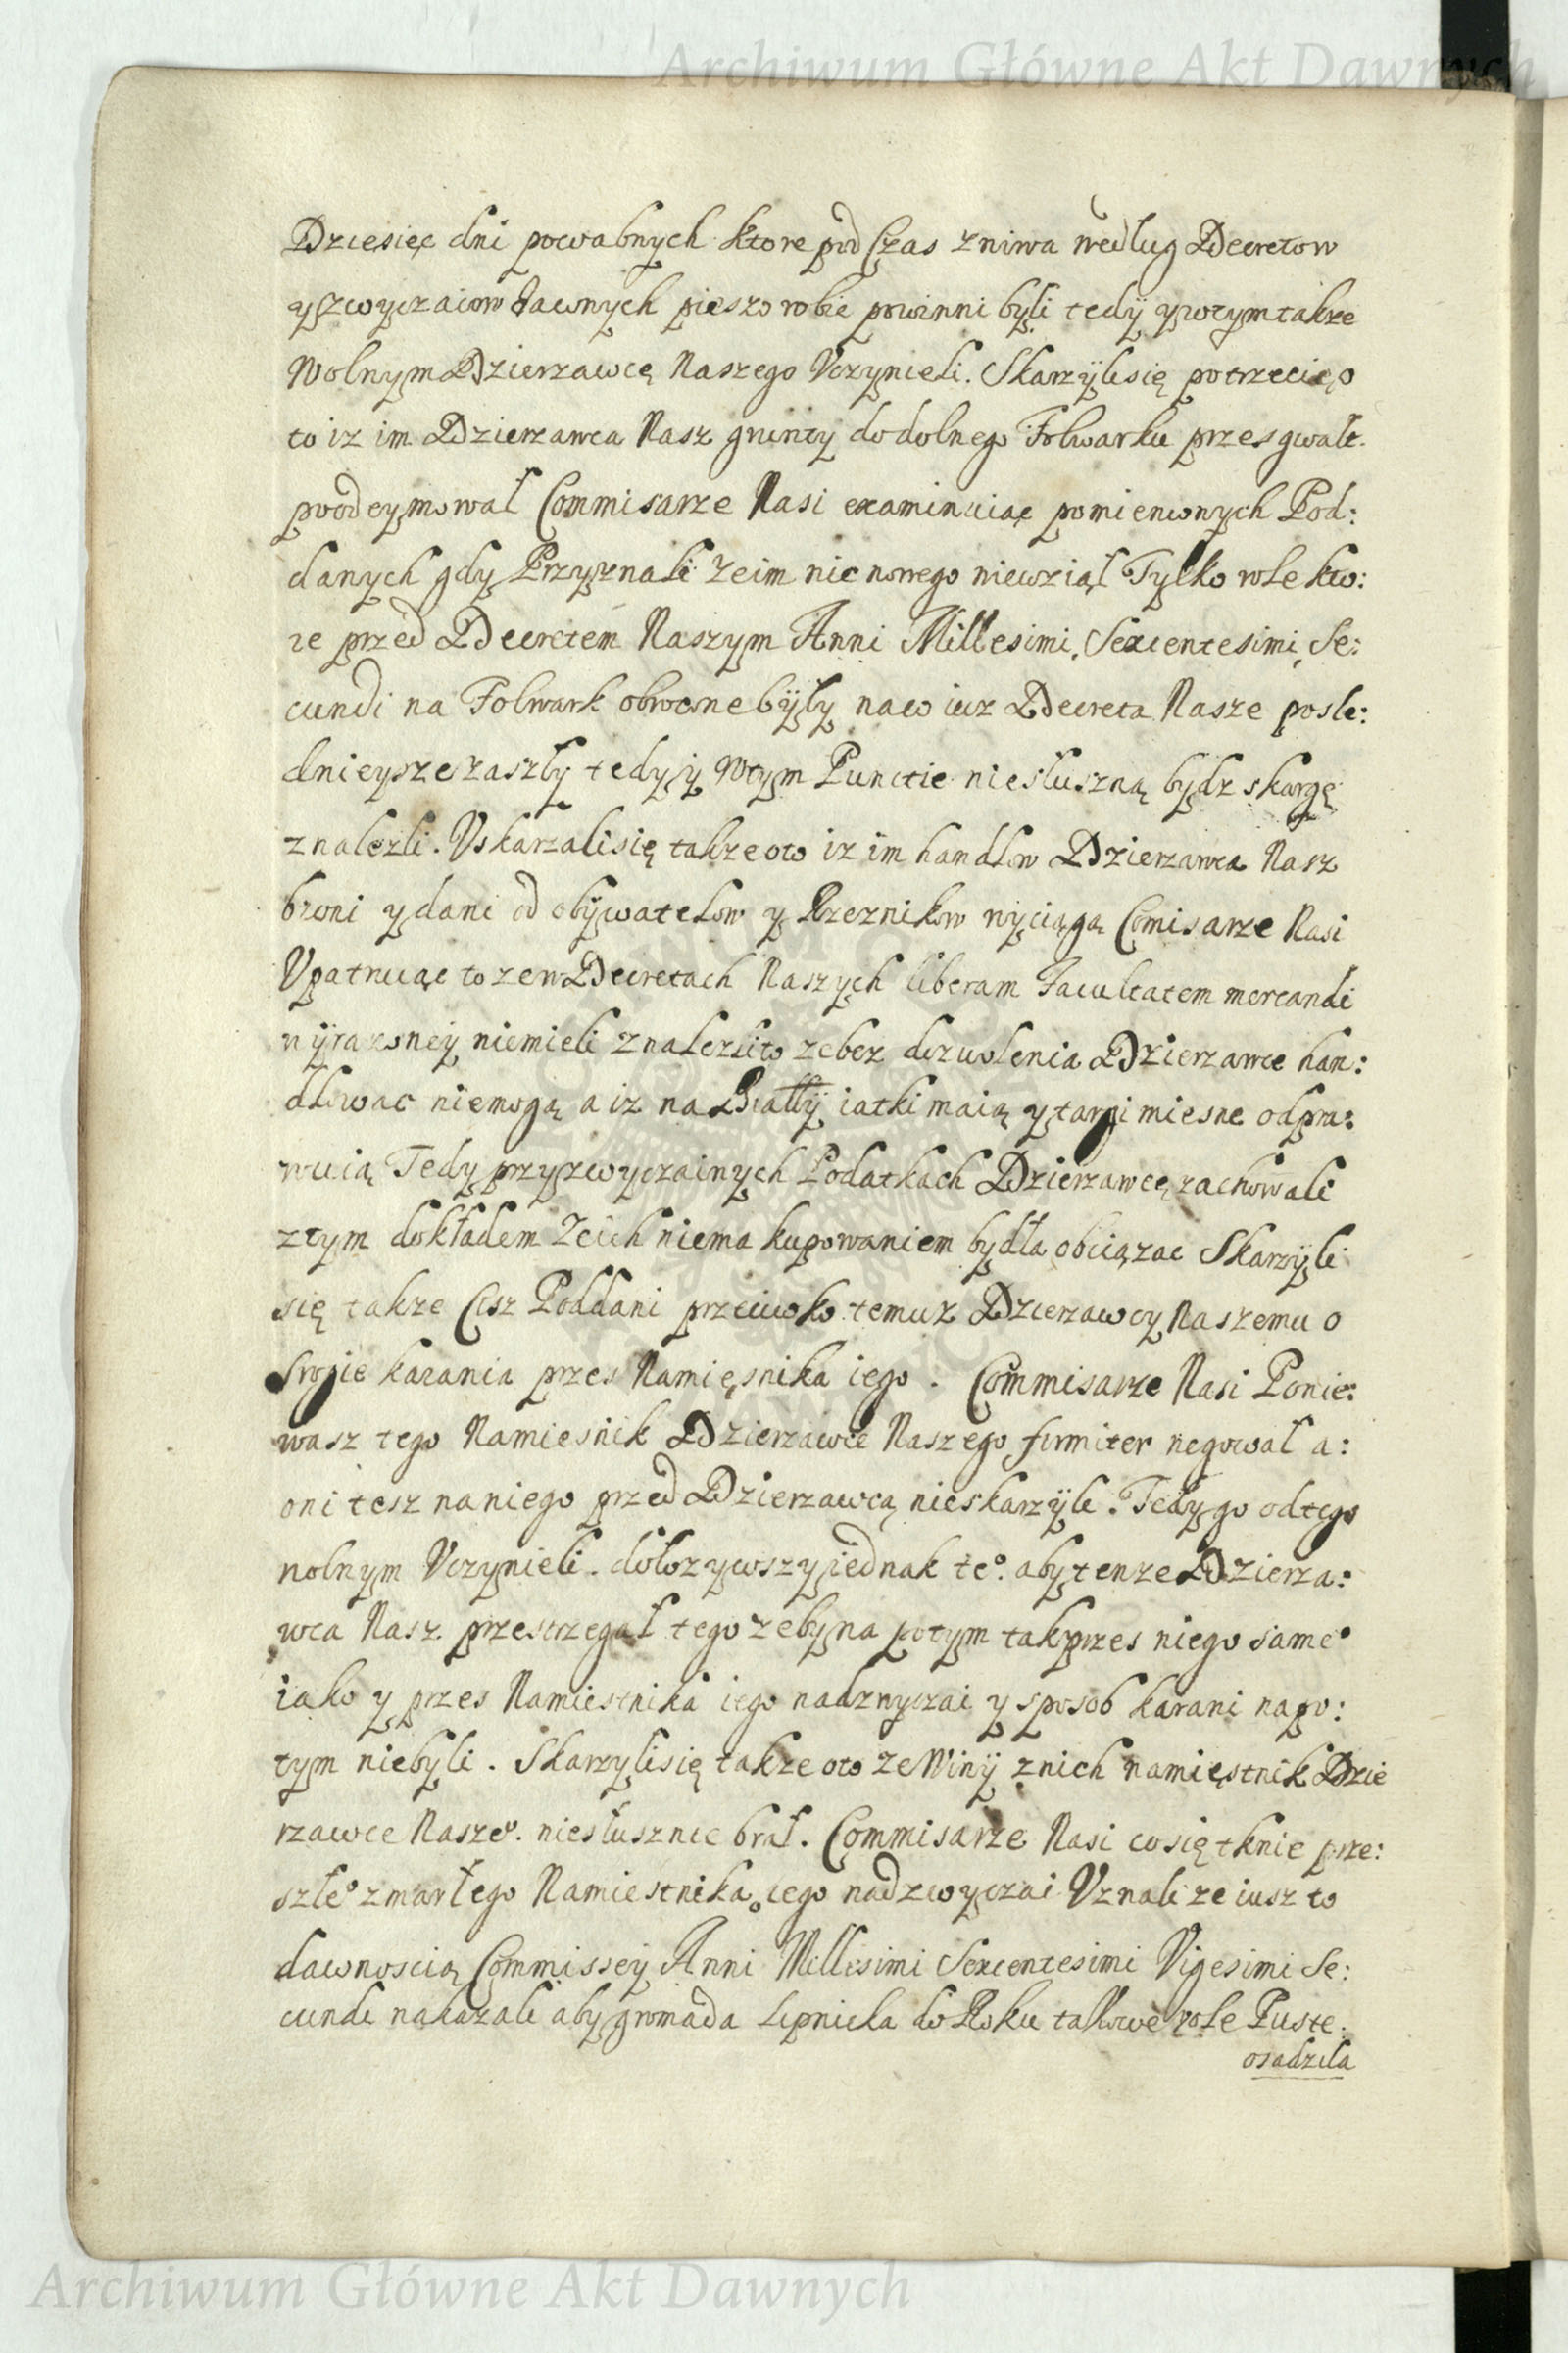 Archiwum Główne Akt Dawnych
Dziesięc dni powabnych ktore pod Czas zniwa według Decretow
y zwyczaiow dawnych pieszo robic powinni byli tedÿ y wtym takze
Wolnym Dzierzawcę Naszego Vczynieli. Skarzÿli się potrzecię o
to iz im Dzierzawca Nasz grunty do dolnego Folwarku przes gwałt
poodeymował Commisarze Nasi examinuiąc pomienionych Pod:
danych gdy Przyznali ze im nic nowego niewziął Tylko role kto:
re przed Decretem Naszym Anni Millesimi Sexcentesimi Se:
cundi na Folwark obrocone bÿły na co iuz Decreta Nasze posle:
dnieysze zaszły tedy y Wtym Punctie niesłuszną bydz skargę
znalezli. Vskarzali się takze oto iz im handlow Dzierzawca Nasz
broni y dani od obÿwatelow y Rzeznikow wyciąga Comisarze Nasi
Vpatruiąc to ze w Decretach Naszych liberam Facultatem mercandi
wÿrazoney niemieli znalezli to ze bez dozwolenia Dzierzawce han:
dlowac niemogą a iz na Białÿ iatki maią y targi miesne odpra:
wuią Tedy przy zwyczainych Podatkach Dzierzawcę zachowali
z tym dokładem Ze ich niema kupowaniem bydła obciązac Skarzÿli
się takze Cisz Poddani przeciwko temuz Dzierzawcy Naszemu o
srogie karania przes Namięsnika iego. Commisarze Nasi Ponie:
wasz tego Namiesnik Dzierzawce Naszego firmiter negował a:
oni tesz na niego przed Dzierzawcą nieskarzÿli. Tedy go od tego
wolnym Vczynieli. dołozywszy iednak te⁰. aby tenze Dzierza:
wca Nasz przestrzegał tego zeby na potym tak przes niego same⁰
iako y przes Namiestnika iego nadzwyczai y sposob karani napo:
tym niebyli. Skarzyli się takze oto ze Winÿ znich namięstnik Dzie
rzawce Nasze⁰. niesłusznie brał. Commisarze Nasi co się tknie prze:
szłe⁰ zmarłego Namiestnika iego nadzwyczai Vznali ze iusz to
dawnoscią Commissey Anni Millesimi Sexcentesimi Vigesimi Se:
cundi nakazali aby gromada Lipnicka do Roku takowe role Puste
osadziła
Archiwum Główne Akt Dawnych